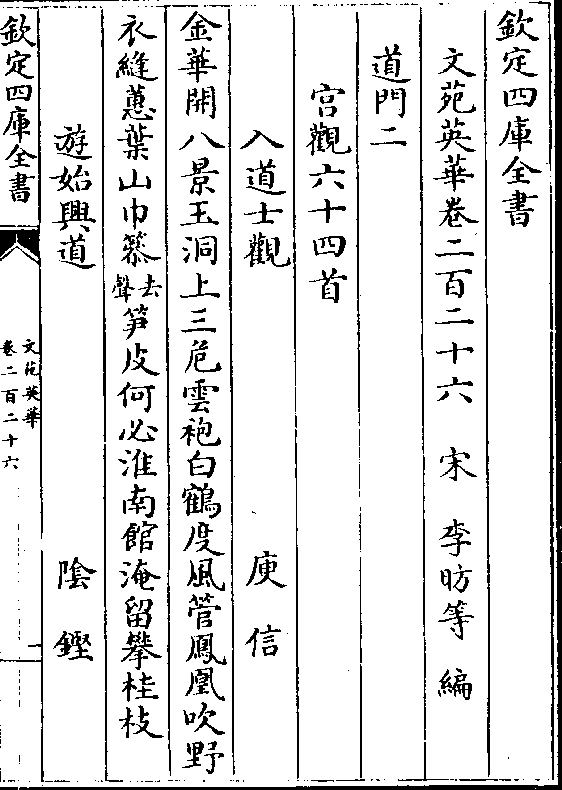 欽定四庫全書
文苑英華卷二百二十六 宋 李昉等 編
道門二
宫觀六十四首
入道士觀 庾信
金華開八景玉洞上三危雲袍白鶴度風管鳳凰吹野
衣縫蕙葉山巾篸去聲笋皮何必淮南館淹留攀桂枝
遊始興道 隂鏗
欽定四庫全書
文苑英華
卷二百二十六
一